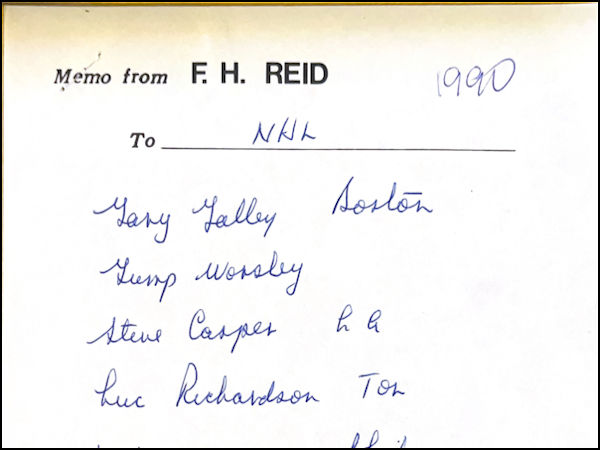 Memo from F. H. REID 1990
To NHL
Gary Galley Boston
Gump Worsley
Steve Casper L A
Luc Richardson Tor